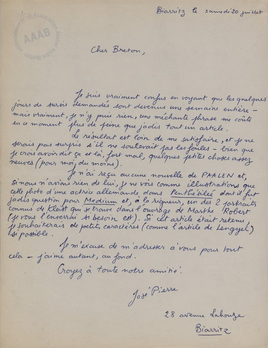 AAAB
Biarritz le samedi 20 juillet
Cher Breton,
Je suis vraiment confus en voyant que les quelques
jours de sursis demandés sont devenus une semaine entière -
mais vraiment, je n'y puis rien, une méchante phrase me coûte
en ce moment plus de peine que jadis tout un article.
Le résultat est loin de me satisfaire, et je ne
serais pas surpris s'il me soulevait pas les foules - bien que
je crois avoir dit çà et là, fort mal, quelques petites choses assez
neuves (pour moi, du moins).
J'n'ai reçu aucune nouvelle de PAALEN et,
si nous n'avions rien de lui, je ne vois comme illustrations que
cette photo d'une actrice allemande dans Penthésilée dont il fut
jadis question pour Medium et, à la rigueur, un des 2 portraits
connus de Kleist qui se trouve dans l'ouvrage de Marthe Robert
(je vous l'enverrai si besoin est). Si cet article était retenu,
je souhaiterais de petits caractères (comme l'article de Lengyel)
si possible.
Je m'excuse de m'adresser à vous pour tout
cela - j'aime autant, au fond.
Croyez à toute notre amitié.
José Pierre
28 avenue Lahouze
Biarritz